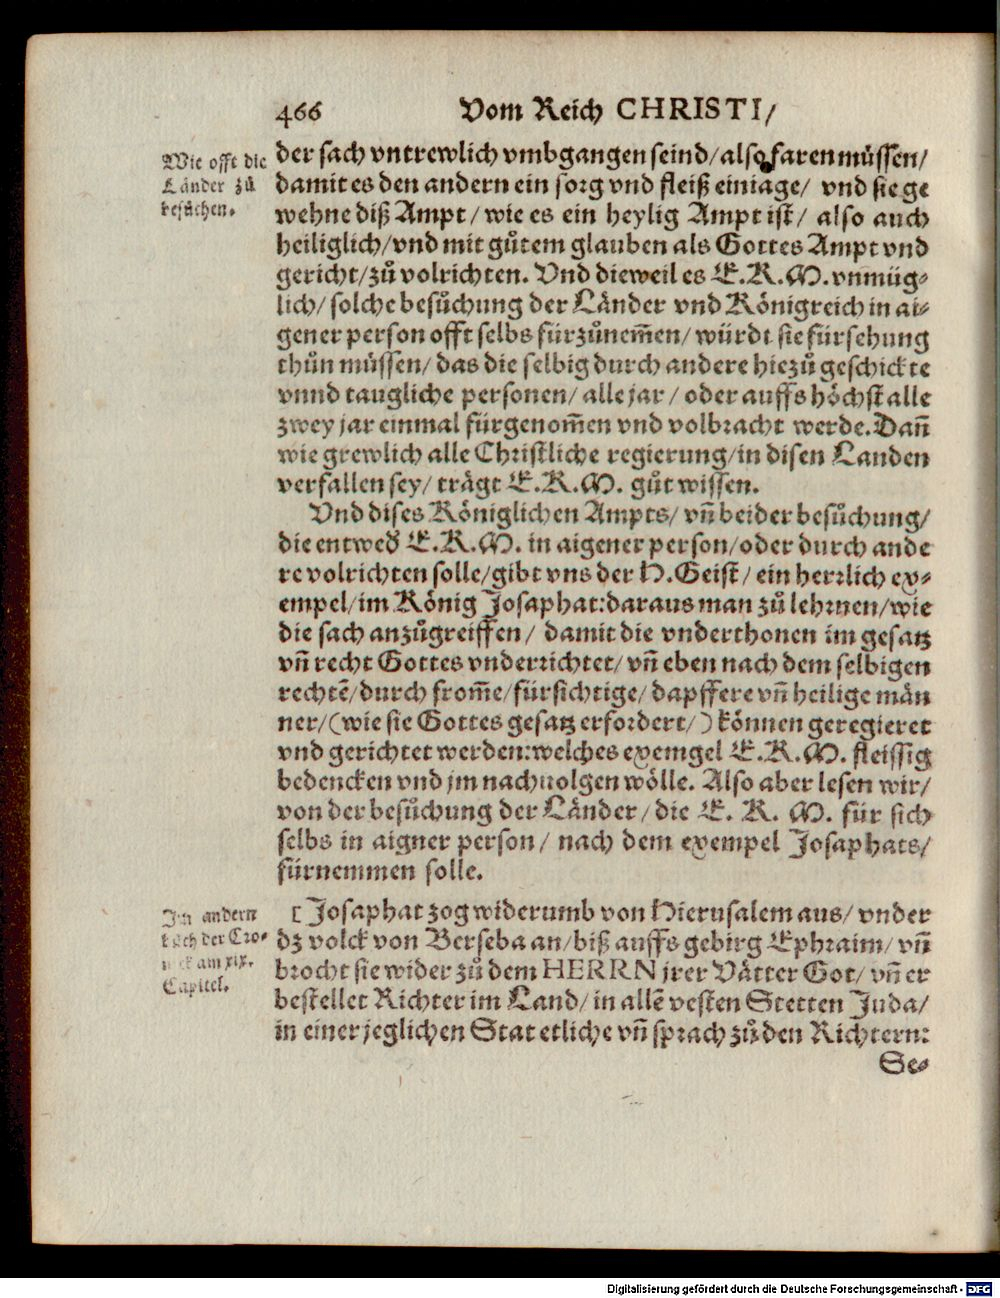 466 Vom Reich CHRISTI/
Wie offt die
Länder zů
besůchen.
der sach vntrewlich vmbgangen seind/ also faren müssen/
damit es den andern ein sorg vnd fleiß einiage/ vnd sie ge
wehne diß Ampt/ wie es ein heylig Ampt ist/ also auch
heiliglich/ vnd mit gůtem glauben als Gottes Ampt vnd
gericht/ zů volrichten. Vnd dieweil es E.K.M. vnmüg-
lich/ solche besůchung der Länder vnd Königreich in ai-
gener person offt selbs fürzůnem̃en/ würdt sie fürsehung
thůn müssen/ das die selbig durch andere hiezů geschickte
vnnd taugliche personen/ alle jar/ oder auffs höchst alle
zwey jar einmal fürgenom̃en vnd volbracht werde. Dañ
wie grewlich alle Christliche regierung/ in disen Landen
verfallen sey/ trägt E.K.M. gůt wissen.
Vnd dises Königlichen Ampts/ vñ beider besůchung/
die entwed̛ E.K.M. in aigener person/ oder durch ande
re volrichten solle/ gibt vns der H. Geist/ ein herrlich ex-
empel/ im König Josaphat: daraus man zů lehrnen/ wie
die sach anzůgreiffen/ damit die vnderthonen im gesatz
vñ recht Gottes vnderrichtet/ vñ eben nach dem selbigen
rechtē/ durch from̃e/ fürsichtige/ dapffere vñ heilige män
ner/ (wie sie Gottes gesatz erfordert/) können geregieret
vnd gerichtet werden: welches exemgel E.K.M. fleissig
bedencken vnd jm nachuolgen wölle. Also aber lesen wir/
von der besůchung der Länder/ die E. K. M. für sich
selbs in aigner person/ nach dem exempel Josaphats/
fürnemmen solle.
Im andern
bůch der Cro-
nick am xix.
Capitel.
[ Josaphat zog widerumb von Hierusalem aus/ vnder
dz volck von Berseba an/ biß auffs gebirg Ephraim/ vñ
brocht sie wider zů dem HERRN jrer Vätter Got/ vñ er
bestellet Richter im Land/ in allē vesten Stetten Juda/
in einer jeglichen Stat etliche vñ sprach zů den Richtern:
Se-
Digitalisierung gefördert durch die Deutsche Forschungsgemeinschaft - DFG